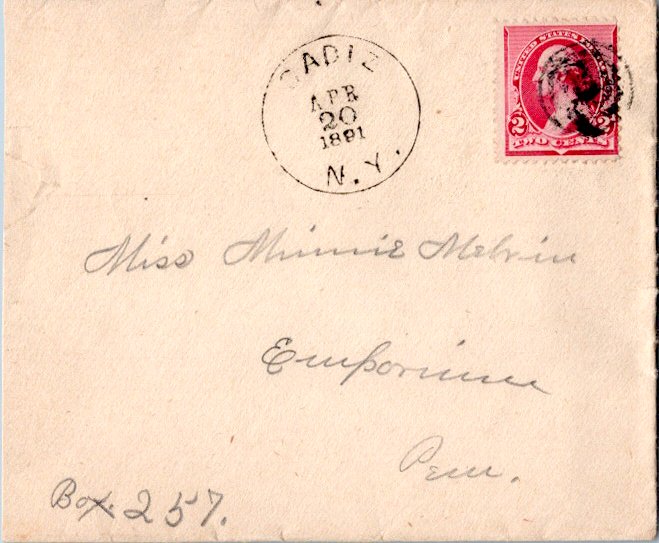 CADIZ
APR
20
1891
N.Y.
UNITED STATES
2
TWO CENTS
Miss Minnie Melvin
Emporium
Penn.
Box 257.